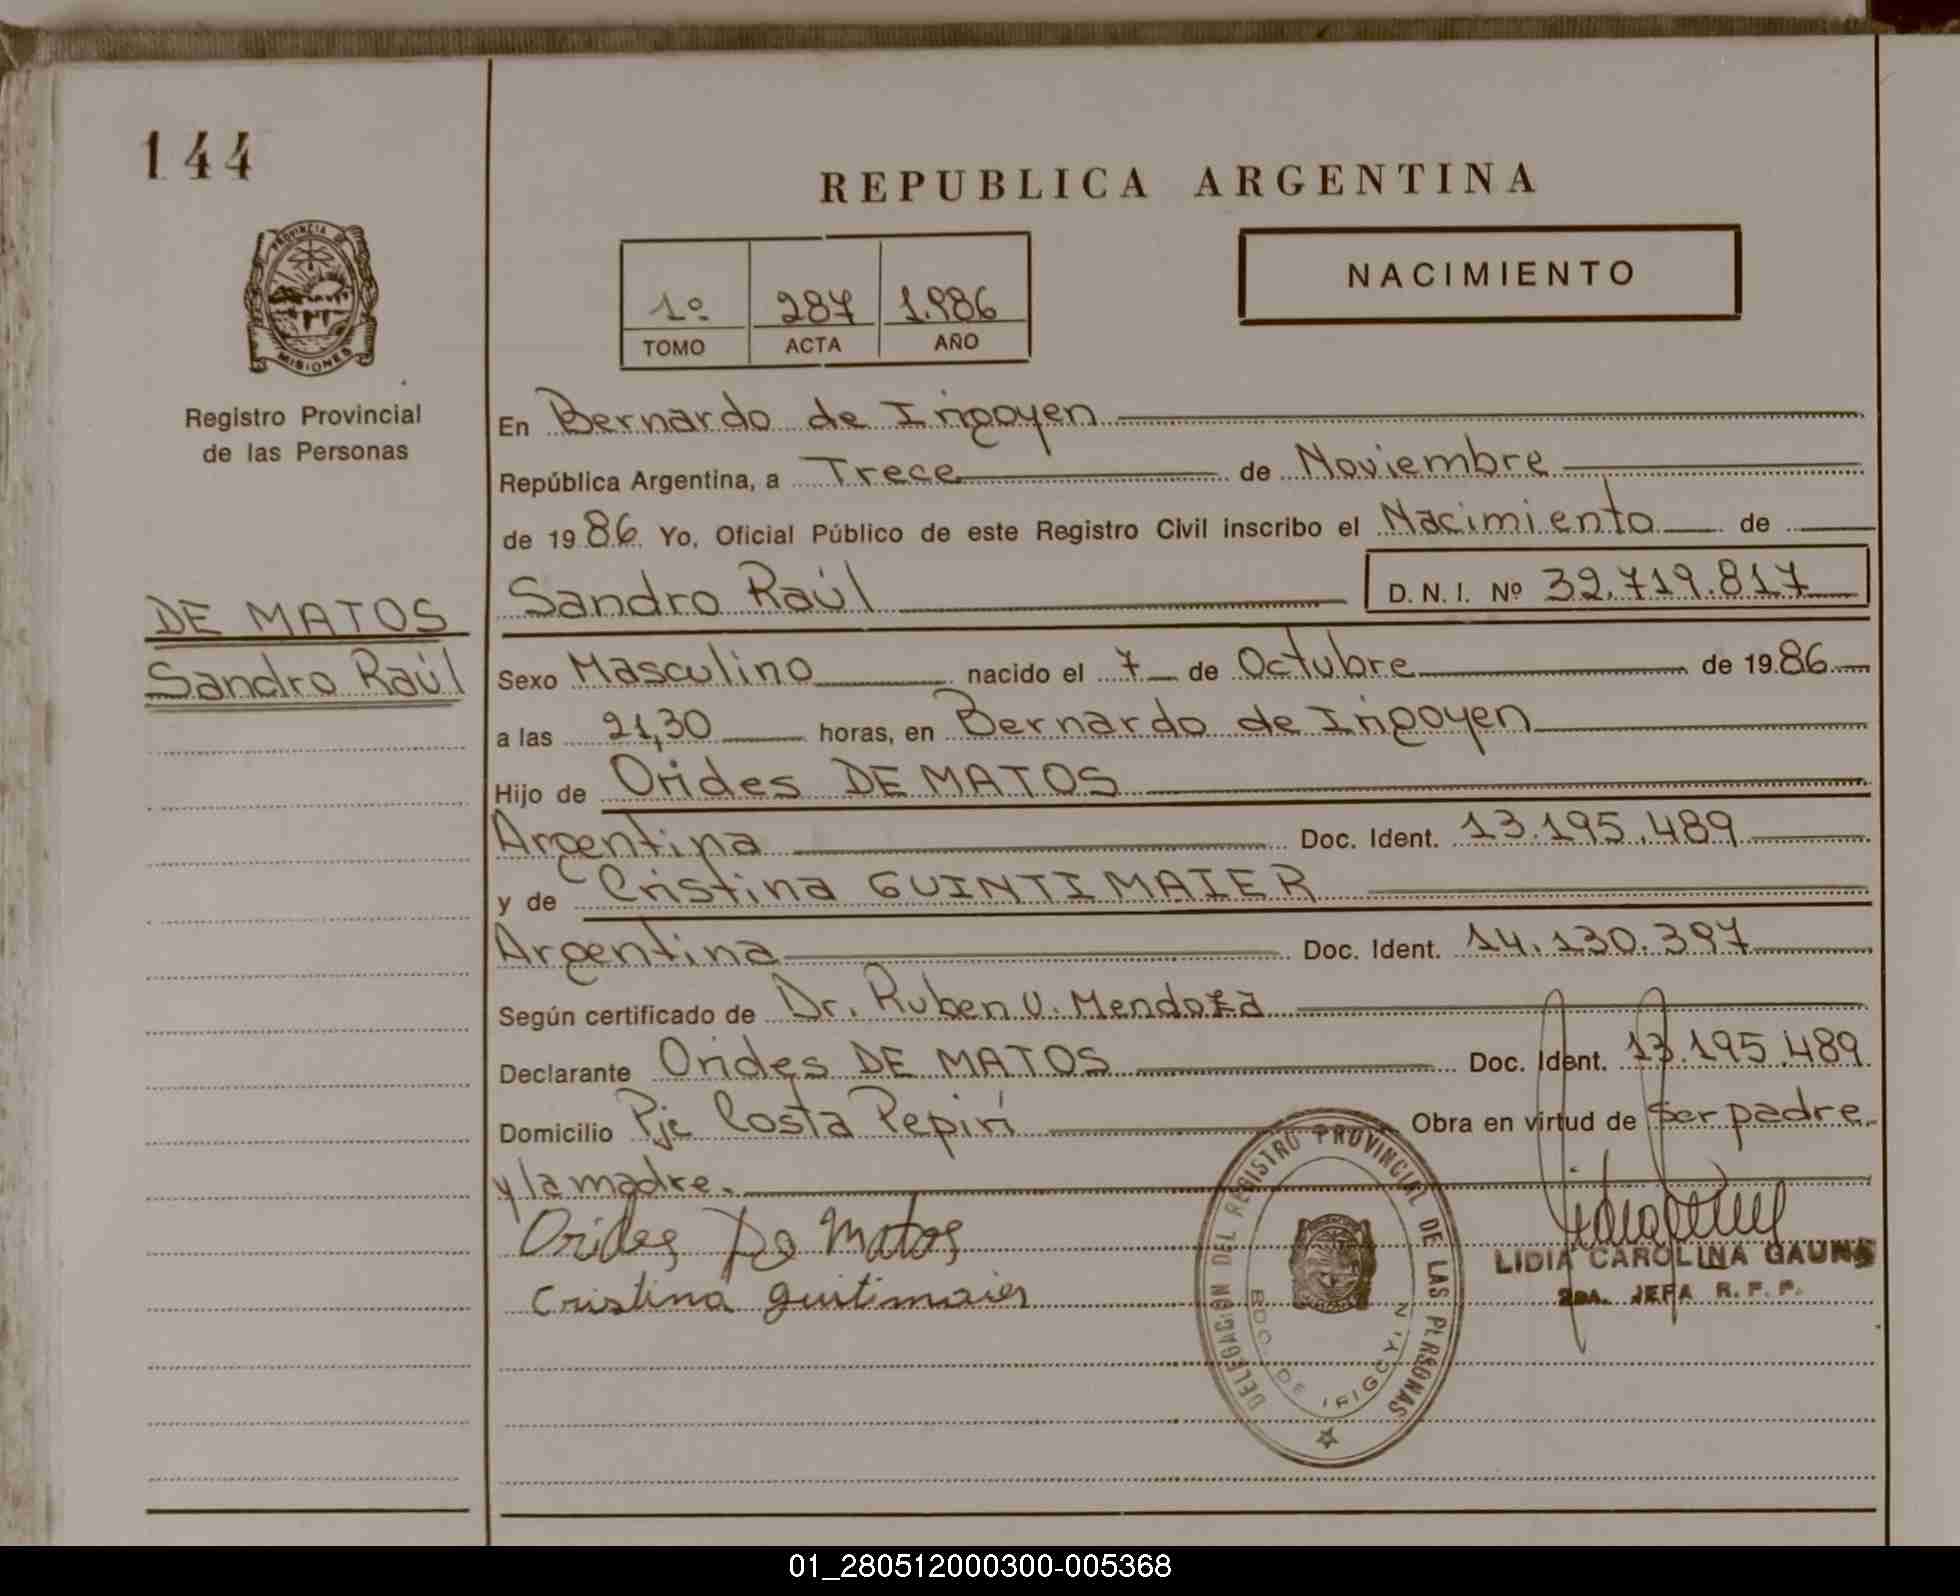 144
REPUBLICA ARGENTINA
PROVINCIA DE
MISIONES
1º 287 1.986
TOMO ACTA AÑO
NACIMIENTO
Registro Provincial
de las Personas
En Bernardo de Irigoyen
República Argentina, a Trece de Noviembre
de 1986 Yo, Oficial Público de este Registro Civil inscribo el Nacimiento de
Sandro Raúl D. N. I. Nº 32.719.817
DE MATOS
Sandro Raúl
Sexo Masculino nacido el 7 de Octubre de 1986
a las 21,30 horas, en Bernardo de Irigoyen
Hijo de Orides DE MATOS
Argentina Doc. Ident. 13.195.489
y de Cristina GUINTIMAIER
Argentina Doc. Ident. 14.130.397
Según certificado de Dr. Ruben V. Mendoza
Declarante Orides DE MATOS Doc. Ident. 13.195.489
Domicilio Pje Costa Pepirí Obra en virtud de ser padre
y la madre.
Orides De Matos
Cristina guitimaier
DELEGACION DEL REGISTRO PROVINCIAL DE LAS PERSONAS
BDO. DE IRIGOYEN
LIDIA CAROLINA GAUNA
2DA. JEFA R. P. P.
01_280512000300-005368